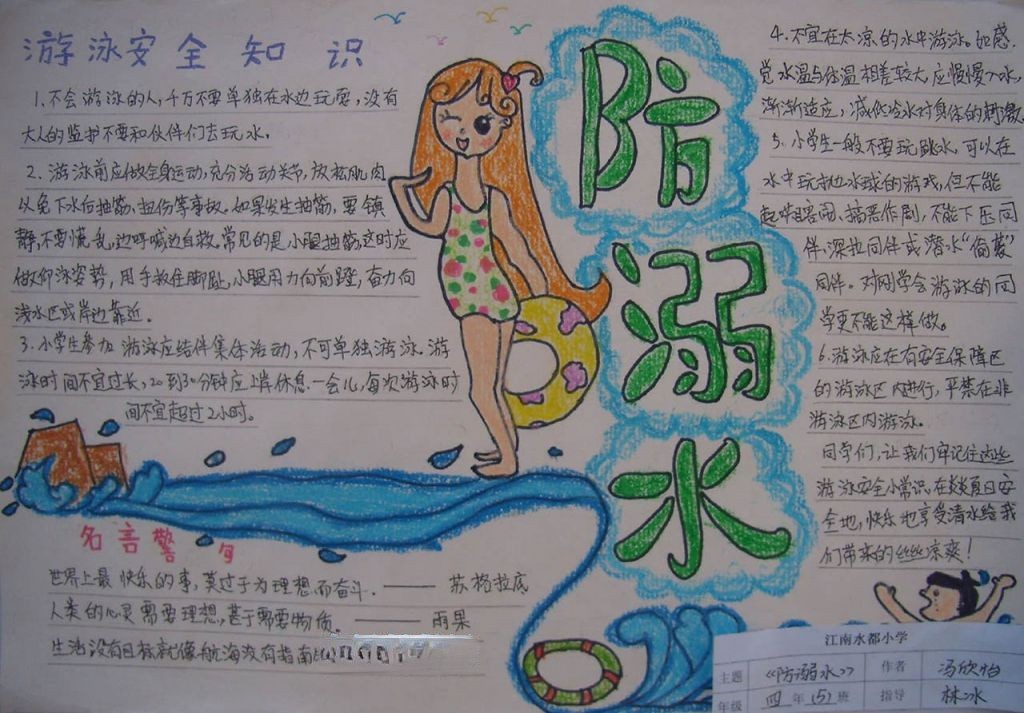 游泳安全知识
1、不会游泳的人,千万不要单独在水边玩耍,没有
大人的监护不要和伙伴们去玩水。
2、游泳前应做全身运动,充分活动关节,放松肌肉
以免下水后抽筋、扭伤等事故。如果发生抽筋,要镇
静,不要慌乱,边呼喊边自救。常见的是小腿抽筋,这时应
做仰泳姿势,用手扳住脚趾,小腿用力向前蹬,奋力向
浅水区或岸边靠近。
3、小学生参加游泳应结伴集体活动,不可单独游泳。游
泳时间不宜过长,20到30分钟应上岸休息一会儿,每次游泳时
间不宜超过2小时。
名言警句
世界上最快乐的事,莫过于为理想而奋斗. —— 苏格拉底
人类的心灵需要理想,甚于需要物质。 —— 雨果
生活没有目标就像航海没有指南
防溺水
4、不宜在太凉的水中游泳。如感
觉水温与体温相差较大,应慢慢入水,
渐渐适应,减低冷水对身体的刺激。
5、小学生一般不要玩跳水,可以在
水中玩抛水球的游戏,但不能
起哄喧闹、搞恶作剧,不能下压同
伴、深拉同伴或潜水“偷袭”
同伴。对刚学会游泳的同
学更不能这样做。
6、游泳应在有安全保障区
的游泳区内进行,严禁在非
游泳区内游泳。
同学们,让我们牢记住这些
游泳安全小常识,在炎炎夏日安
全地,快乐地享受清水给我
们带来的丝丝凉爽!
江南水都小学
主题 《防溺水》 作者 冯欣怡
年级 四年(5)班 指导 林冰